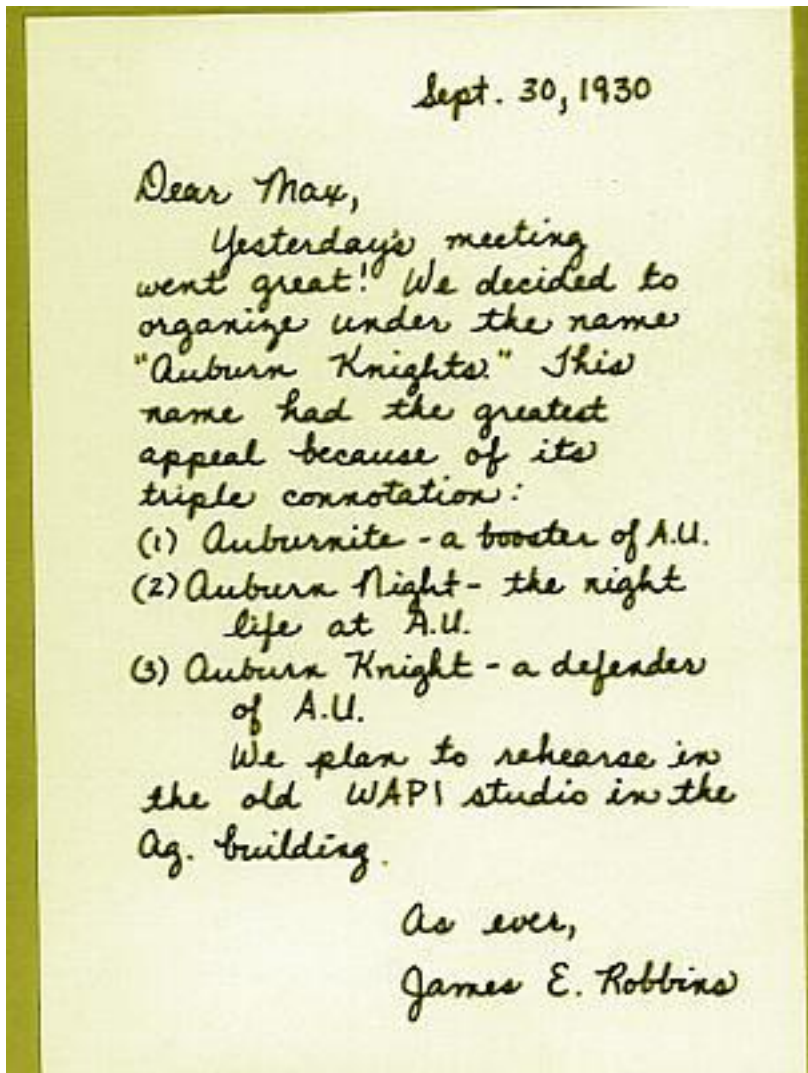 Sept. 30, 1930
Dear Max,
Yesterday's meeting
went great! We decided to
organize under the name
"Auburn Knights." This
name had the greatest
appeal because of its
triple connotation:
(1) Auburnite - a booster of A.U.
(2) Auburn Night - the night
life at A.U.
(3) Auburn Knight - a defender
of A.U.
We plan to rehearse in
the old WAPI studio in the
Ag. building.
As ever,
James E. Robbins